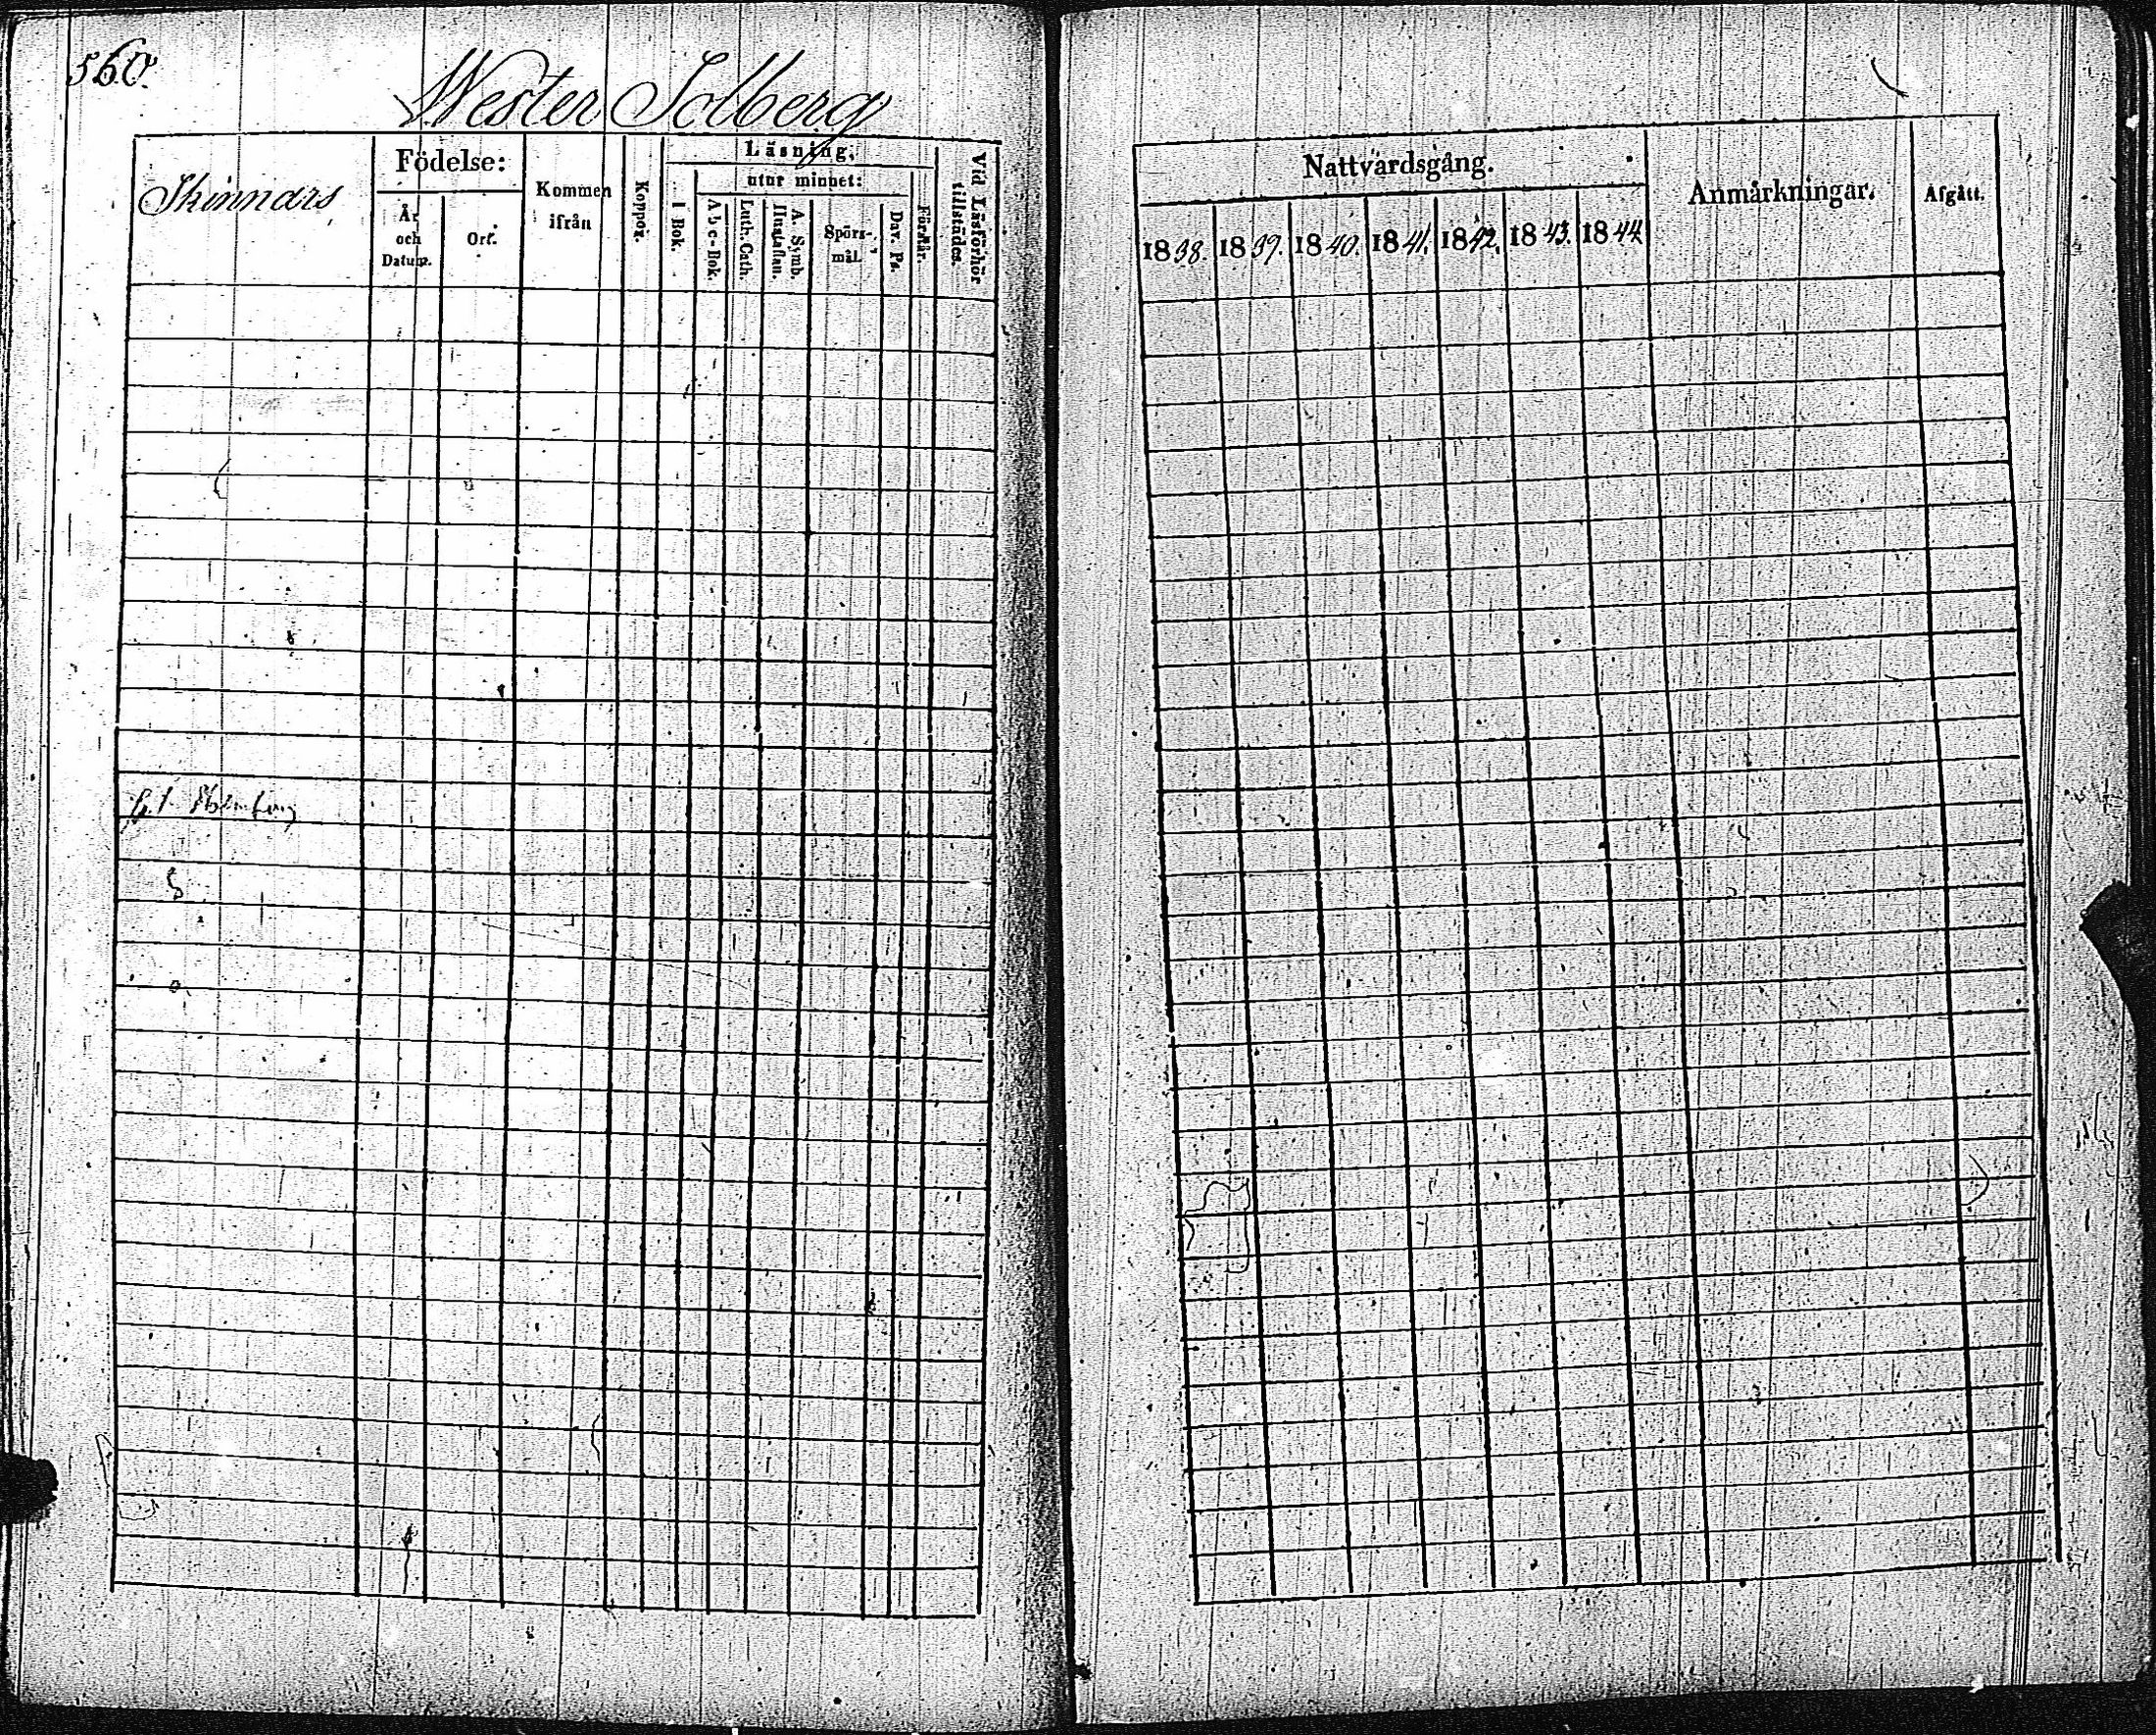 560.
Wester Solberg
Skinnars
Födelse:
År och Datum.
Ort.
Kommen ifrån
Koppor.
Läsning,
I Bok.
utur minnet:
A b c-Bok.
Luth. Cath.
A. Symb. Hustaflan.
Spörs-mål.
Dav. Ps.
Förstår.
Vid Läsförhör tillstädes.
Nattvardsgång.
1838. 1839. 1840. 1841. 1842. 1843. 1844
Anmärkningar.
Afgått.